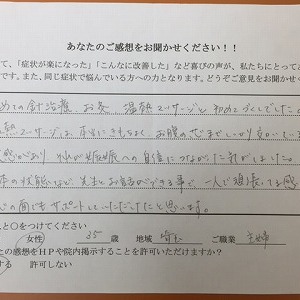 あなたのご感想をお聞かせください！！
て、「症状が楽になった」「こんなに改善した」など喜びの声が、私たちにとって
です。また、同じ症状で悩んでいる方への力となります。どうぞご意見をお聞かせ
めての針治療、お灸、温熱マッサージと初めてづくしでした。
熱マッサージは本当にきもちよく、お腹の芯までしっかり
感じがあり それが妊娠への自信につながった気がしました。
の状態など先生とお話ができる事で、一人で頑張ってる感
の面でもサポートしていただけたと思います。
と○をつけてください
女性 35 歳 地域 埼玉 ご職業 主婦
たの感想をＨＰや院内掲示することを許可いただけますか？
する 許可しない